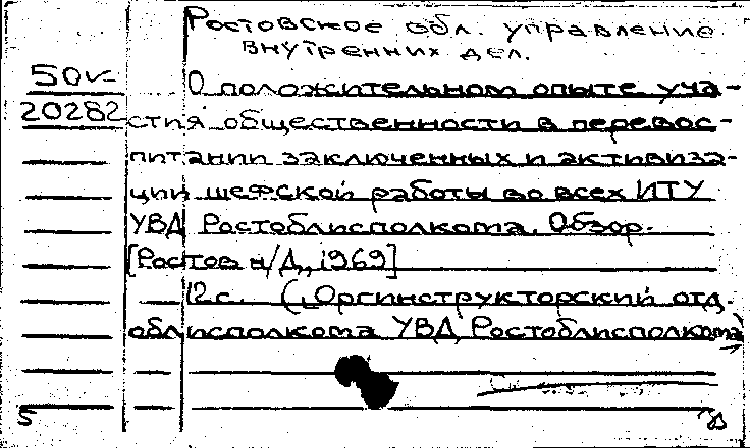 Ростовское обл. управление
внутренних дел.
50к-
О положительном опыте уча-
20282
стия общественности в перевос-
питании заключенных и активиза-
ции шефской работы во всех ИТУ
УВД Ростоблисполкома. Обзор.
[Ростов н/Д., 1969]
12 с. (Оргинструкторский отд.
облисполкома УВД Ростоблисполкома)